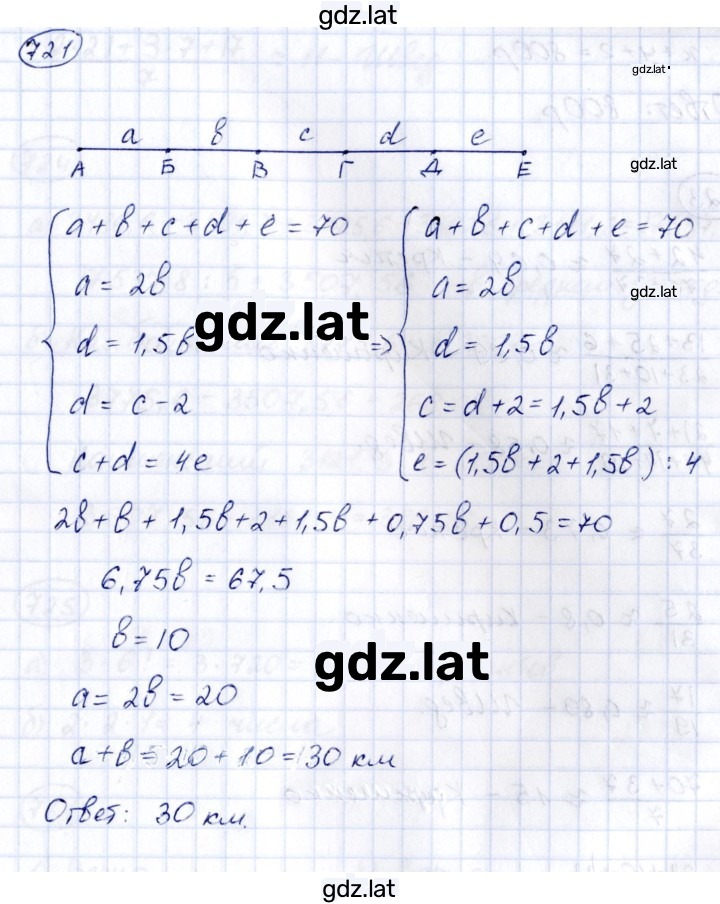 gdz.lat
721
gdz.lat
a в c d e
А Б В Г Д Е
gdz.lat
a + в + c + d + e = 70
a = 2в
d = 1,5в
d = c - 2
c + d = 4e
=>
a + в + c + d + e = 70
a = 2в
d = 1,5в
c = d + 2 = 1,5в + 2
e = (1,5в + 2 + 1,5в) : 4
gdz.lat
gdz.lat
2в + в + 1,5в + 2 + 1,5в + 0,75в + 0,5 = 70
6,75в = 67,5
в = 10
gdz.lat
a = 2в = 20
a + в = 20 + 10 = 30 км
Ответ: 30 км.
gdz.lat